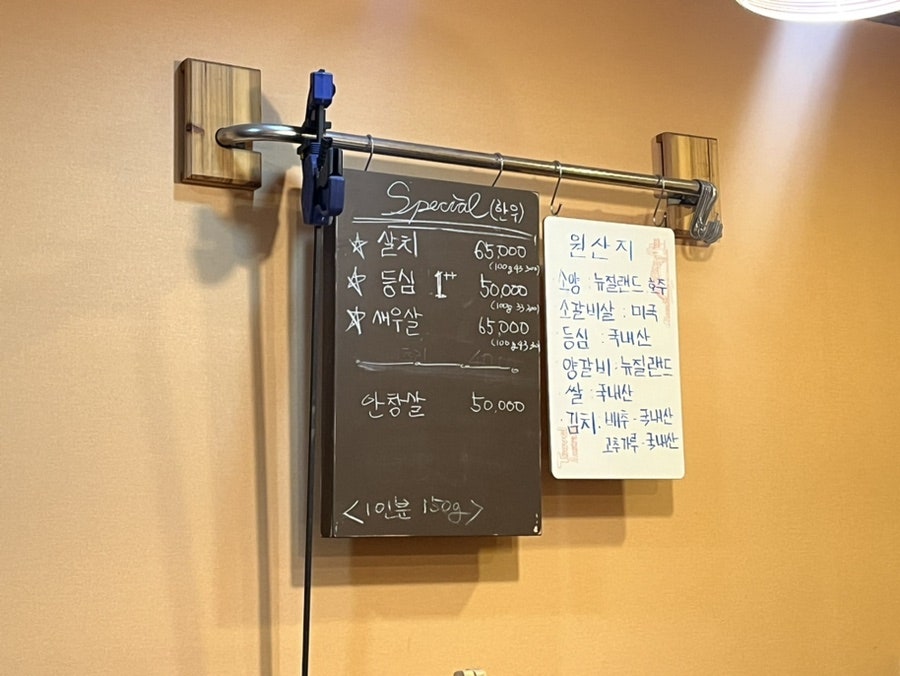 Special (한우)
☆ 살치 65,000
(100g 43,300)
☆ 등심 1++ 50,000
(100g 33,300)
☆ 새우살 65,000
(100g 43,300)
안창살 50,000
<1인분 150g>
원산지
소양 : 뉴질랜드 호주
소갈비살 : 미국
등심 : 국내산
양갈비 · 뉴질랜드
쌀 : 국내산
김치 · 배추 · 국내산
고추가루 · 국내산